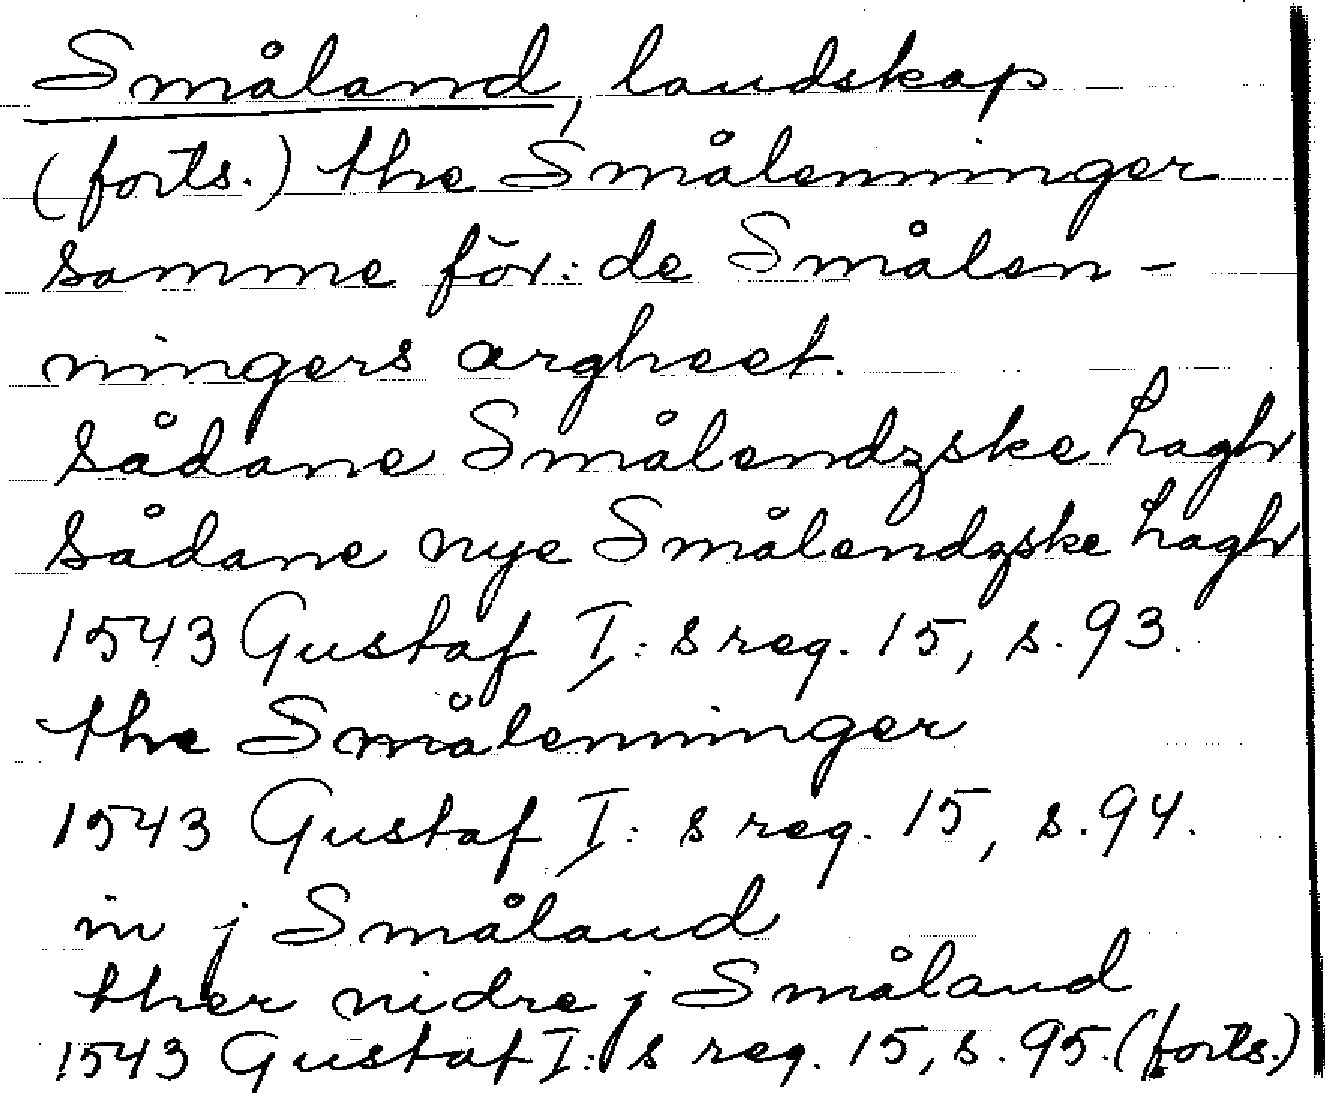 Småland, landskap
(forts.) the Smålenninger
samme för: de Smålen-
ningers argheet.
sådane Smålendzske hagh
sådane nye Smålendzske hagh
1543 Gustaf I:s reg. 15, s. 93.
the Smålenninger
1543 Gustaf I:s reg. 15, s. 94.
in j Småland
ther nidre j Småland
1543 Gustaf I:s reg. 15, s. 95. (forts.)